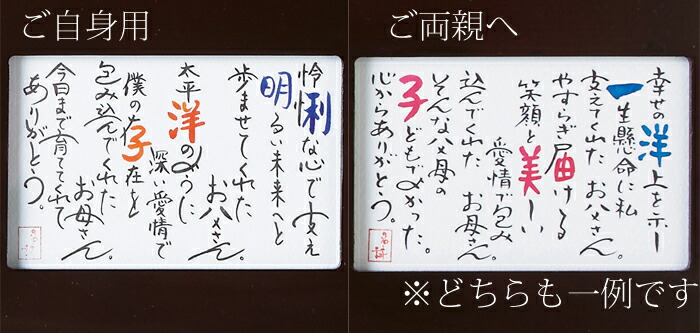 ご自身用
怜悧な心で支え
明るい未来へと
歩ませてくれた
お父さん。
太平洋のように
深い愛情で
僕の存在を
包み込んでくれた
お母さん。
今日まで育ててくれて
ありがとう。
ご両親へ
幸せの洋上を
一生懸命に私
支えてくれた お父さん。
やすらぎ届ける
笑顔と美しい
愛情で包み
込んでくれた お母さん。
そんな父母の
子どもでよかった。
心からありがとう。
※どちらも一例です